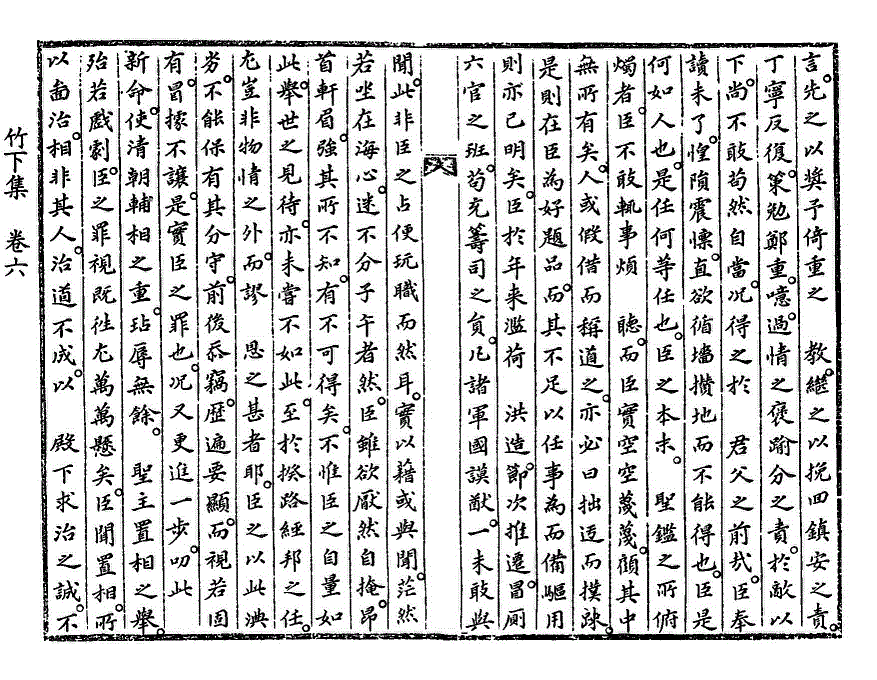 言先之以奬予倚重之 教繼之以挽回鎭安之責
丁寧反復策勉鄭重噫過情之褒踰分之責於敵以
下尙不敢苟然自當况得之於 君父之前哉臣奉
讀未了惶隕震慄直欲循墻攅地而不能得也臣是
何如人也是任何等任也臣之本末 聖鑑之所俯
燭者臣不敢軏事煩 聽而臣實空空蔑蔑顧其中
無所有矣人或假借而稱道之亦必曰拙迃而撲踈
是則在臣爲好題品而其不足以任事爲而備驅用
則亦已明矣臣於年來濫荷 洪造節次推遷冒厠
六官之班苟充籌司之員凡諸軍國謨猷一未敢與
聞此非臣之占便玩職而然耳實以藉或與聞茫然
若坐在海心迷不分子午者然臣雖欲厭然自掩昂
首軒眉強其所不知有不可得矣不惟臣之自量如
此擧世之見待亦未嘗不如此至於揆路經邦之任
尤豈非物情之外而謬 恩之甚者耶臣之以此淟
劣不能保有其分守前後忝竊歷遍要顯而視若固
有冒據不讓是實臣之罪也况又更進一步叨此
新命使淸朝輔相之重玷辱無餘 聖主置相之擧
殆若戱劇臣之罪視旣徃尤萬萬懸矣臣聞置相所
以啚治相非其人治道不成以 殿下求治之誠不
竹下集 卷六